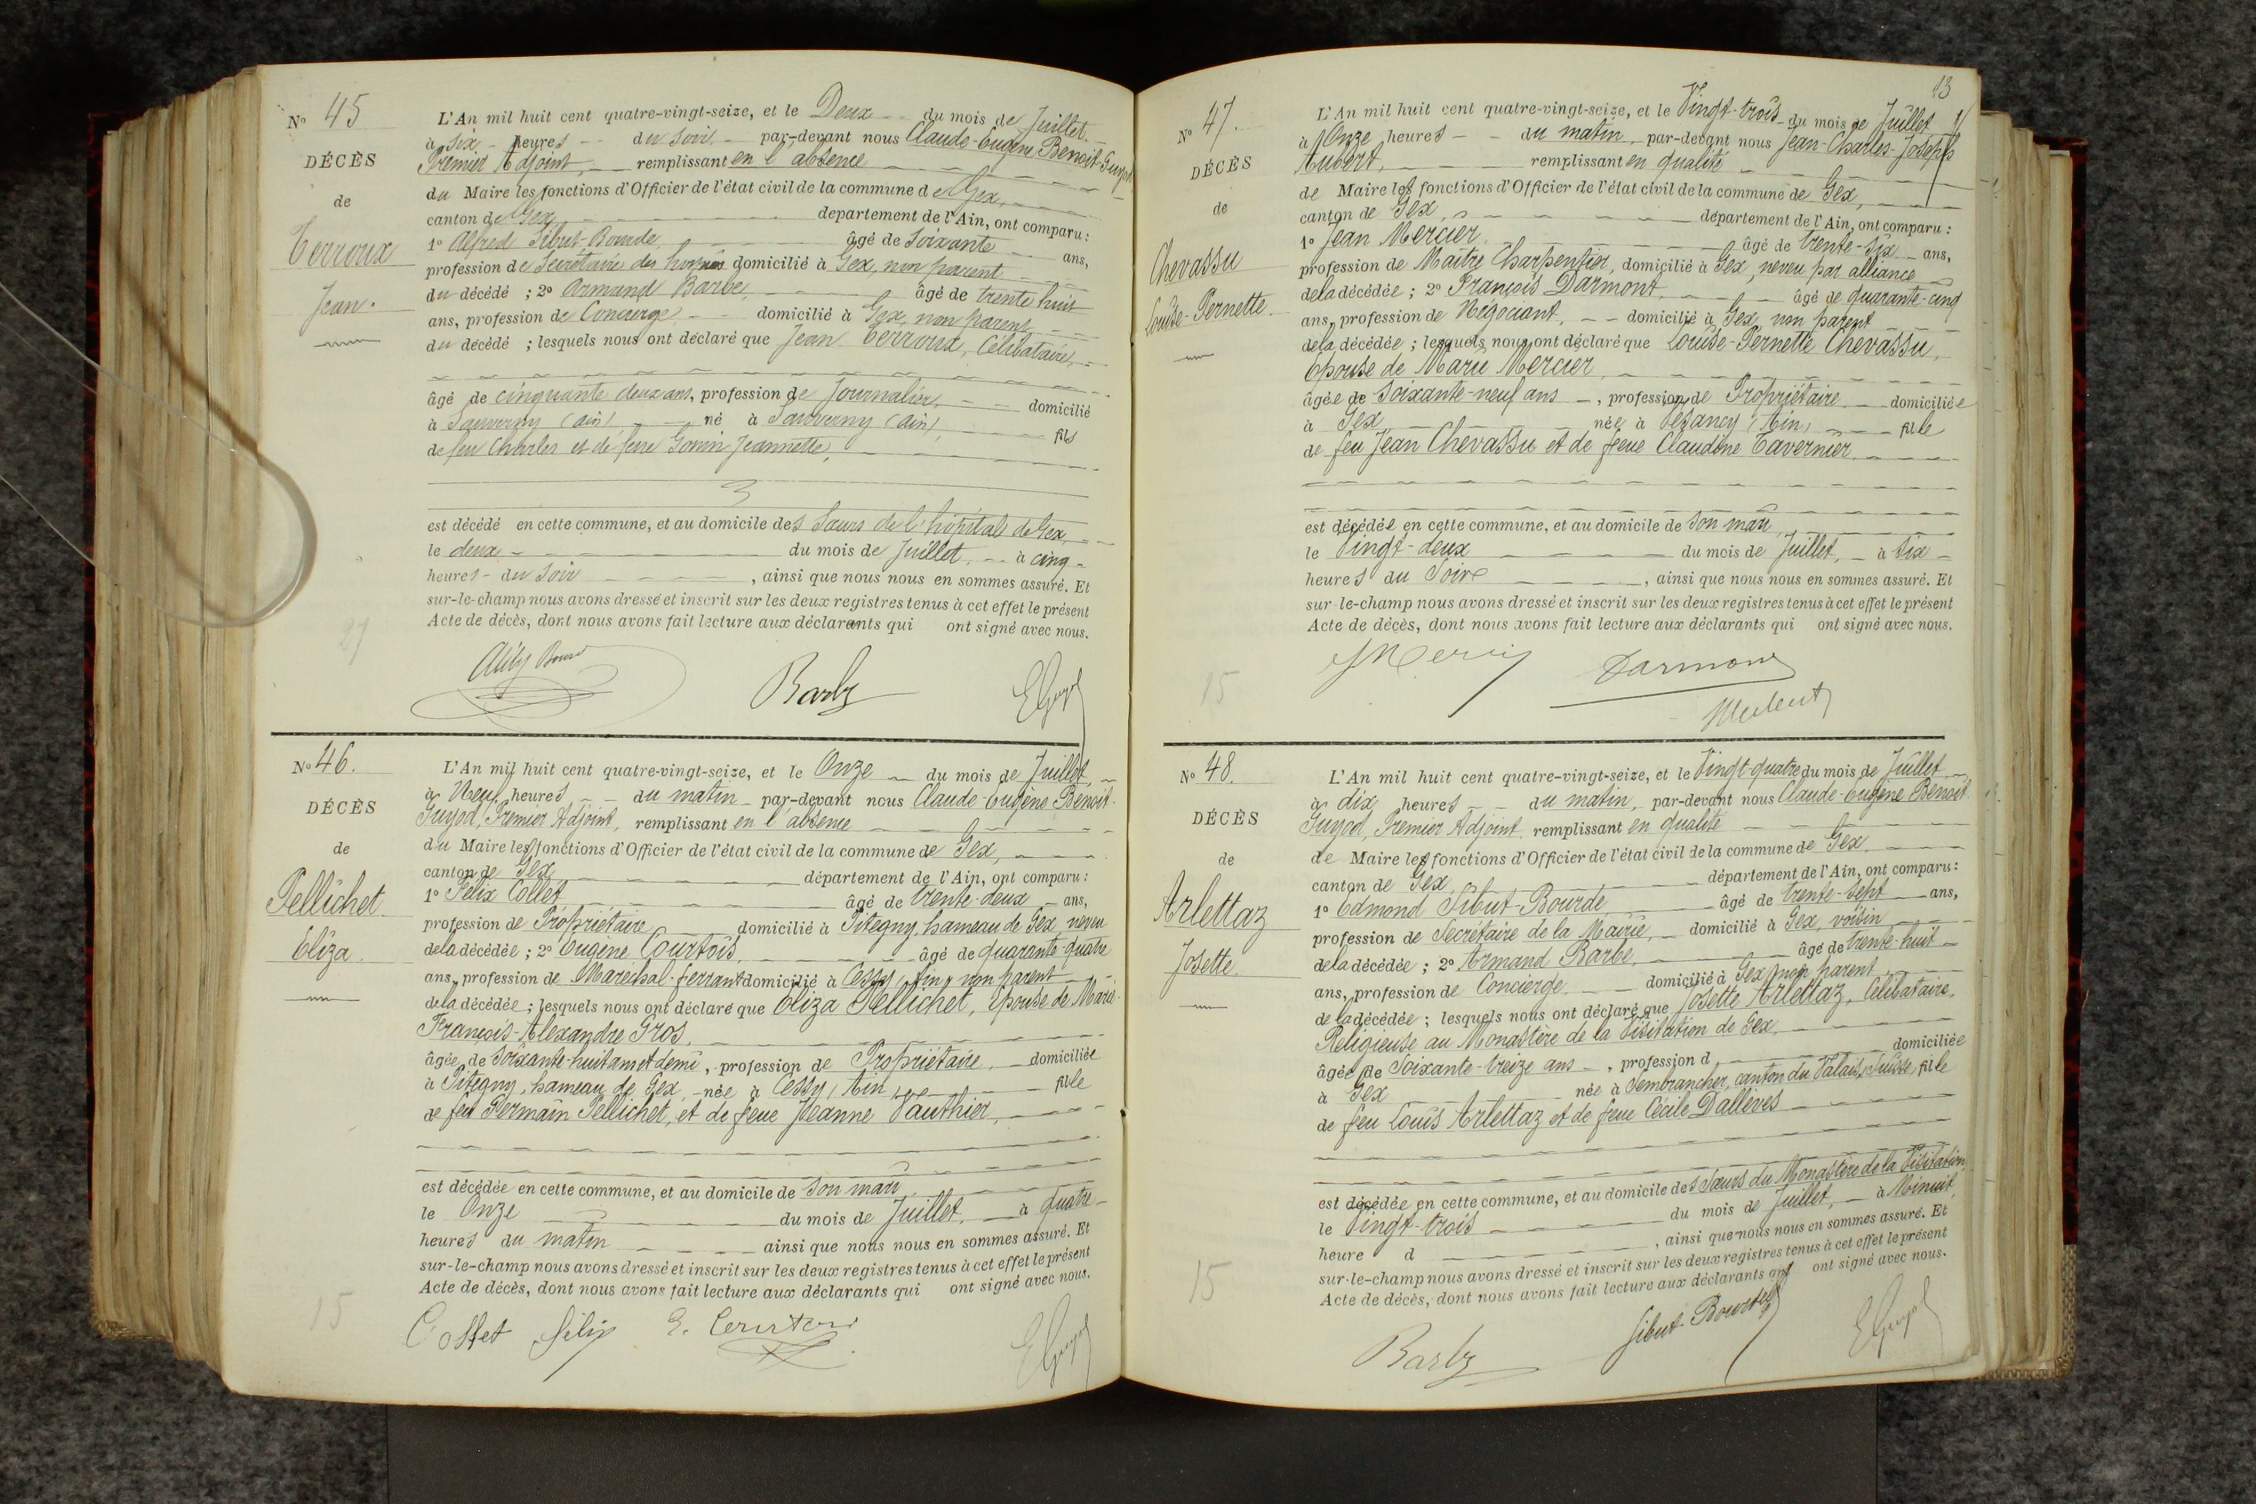 N° 45
DÉCÈS
de
Terroux
Jean.
L'An mil huit cent quatre-vingt-seize, et le Deux du mois de Juillet
à six heures du soir par-devant nous Claude-Eugène Benoit-Guyod
Premier Adjoint, remplissant en l'absence
du Maire les fonctions d'Officier de l'état civil de la commune de Gex,
canton de Gex département de l'Ain, ont comparu :
1° Alfred Sibut-Bourde âgé de soixante ans,
profession de Secrétaire des hospices domicilié à Gex, non parent
du décédé ; 2° Armand Barbe, âgé de trente huit
ans, profession de Concierge domicilié à Gex, non parent
du décédé ; lesquels nous ont déclaré que Jean Terroux, Célibataire,
âgé de cinquante deux ans, profession de Journalier domicilié
à Sauverny (Ain) né à Sauverny (Ain), fils
de feu Charles et de feue Gonin Jeannette,
est décédé en cette commune, et au domicile des Sœurs de l'hôpital de Gex
le deux du mois de Juillet, à cinq
heures du soir , ainsi que nous nous en sommes assuré. Et
sur-le-champ nous avons dressé et inscrit sur les deux registres tenus à cet effet le présent
Acte de décès, dont nous avons fait lecture aux déclarants qui ont signé avec nous.
27
Barbe
EGuyod
N° 46.
DÉCÈS
de
Pellichet
Eliza
L'An mil huit cent quatre-vingt-seize, et le Onze du mois de Juillet
à Neuf heures du matin par-devant nous Claude-Eugène Benoit-
Guyod, Premier Adjoint, remplissant en l'absence
du Maire les fonctions d'Officier de l'état civil de la commune de Gex,
canton de Gex département de l'Ain, ont comparu :
1° Félix Collet âgé de trente-deux ans,
profession de Propriétaire domicilié à Pitegny, hameau de Gex, neveu
de la décédée ; 2° Eugène Courtois, âgé de quarante-quatre
ans, profession de Maréchal-ferrant domicilié à Cessy (Ain) non parent
de la décédée ; lesquels nous ont déclaré que Eliza Pellichet, épouse de Marie-
François-Alexandre Gros,
âgée de soixante-huit ans et demi, profession de Propriétaire, domiciliée
à Pitegny, hameau de Gex, née à Cessy (Ain) fille
de feu Germain Pellichet, et de feue Jeanne Vauthier,
est décédée en cette commune, et au domicile de son mari
le Onze du mois de Juillet, à quatre
heures du matin ainsi que nous nous en sommes assuré. Et
sur-le-champ nous avons dressé et inscrit sur les deux registres tenus à cet effet le présent
Acte de décès, dont nous avons fait lecture aux déclarants qui ont signé avec nous.
15
Collet Félix E. Courtois
EGuyod
13
N° 47.
DÉCÈS
de
Chevassu
Louise-Pernette
L'An mil huit cent quatre-vingt-seize, et le Vingt-trois du mois de Juillet
à Onze heures du matin par-devant nous Jean-Charles-Joseph
Aubert, remplissant en qualité
de Maire les fonctions d'Officier de l'état civil de la commune de Gex,
canton de Gex, département de l'Ain, ont comparu :
1° Jean Mercier âgé de trente-six ans,
profession de Maître Charpentier, domicilié à Gex, neveu par alliance
de la décédée ; 2° François Darmont, âgé de quarante-cinq
ans, profession de Négociant, domicilié à Gex, non parent
de la décédée ; lesquels nous ont déclaré que Louise-Pernette Chevassu,
Epouse de Marie Mercier,
âgée de soixante-neuf ans , profession de Propriétaire domiciliée
à Gex née à Vesancy (Ain) fille
de feu Jean Chevassu et de feue Claudine Tavernier
est décédée en cette commune, et au domicile de son mari
le Vingt-deux du mois de Juillet, à Six
heures du Soir , ainsi que nous nous en sommes assuré. Et
sur-le-champ nous avons dressé et inscrit sur les deux registres tenus à cet effet le présent
Acte de décès, dont nous avons fait lecture aux déclarants qui ont signé avec nous.
15
JMercier Darmont
N° 48.
DÉCÈS
de
Arlettaz
Josette
L'An mil huit cent quatre-vingt-seize, et le Vingt-quatre du mois de Juillet
à dix heures du matin, par-devant nous Claude-Eugène Benoit
Guyod, Premier Adjoint remplissant en qualité
de Maire les fonctions d'Officier de l'état civil de la commune de Gex,
canton de Gex, département de l'Ain, ont comparu :
1° Edmond Sibut-Bourde âgé de trente-sept ans,
profession de Secrétaire de la Mairie, domicilié à Gex, voisin
de la décédée ; 2° Armand Barbe âgé de trente-huit
ans, profession de Concierge domicilié à Gex, non parent
de la décédée ; lesquels nous ont déclaré que Josette Arlettaz, Célibataire,
Religieuse au Monastère de la Visitation de Gex,
âgée de Soixante-treize ans , profession d domiciliée
à Gex née à Sembrancher, canton du Valais, Suisse, fille
de feu Louis Arlettaz et de feue Cécile Dallèves
est décédée en cette commune, et au domicile des Sœurs du Monastère de la Visitation,
le Vingt-trois du mois de Juillet, à Minuit,
heure d , ainsi que nous nous en sommes assuré. Et
sur-le-champ nous avons dressé et inscrit sur les deux registres tenus à cet effet le présent
Acte de décès, dont nous avons fait lecture aux déclarants qui ont signé avec nous.
15
Barbe Sibut-Bourde EGuyod